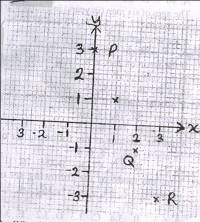 y
3 P
2
1
3 -2 -1 1 2 3 x
-1
Q
-2
-3 R